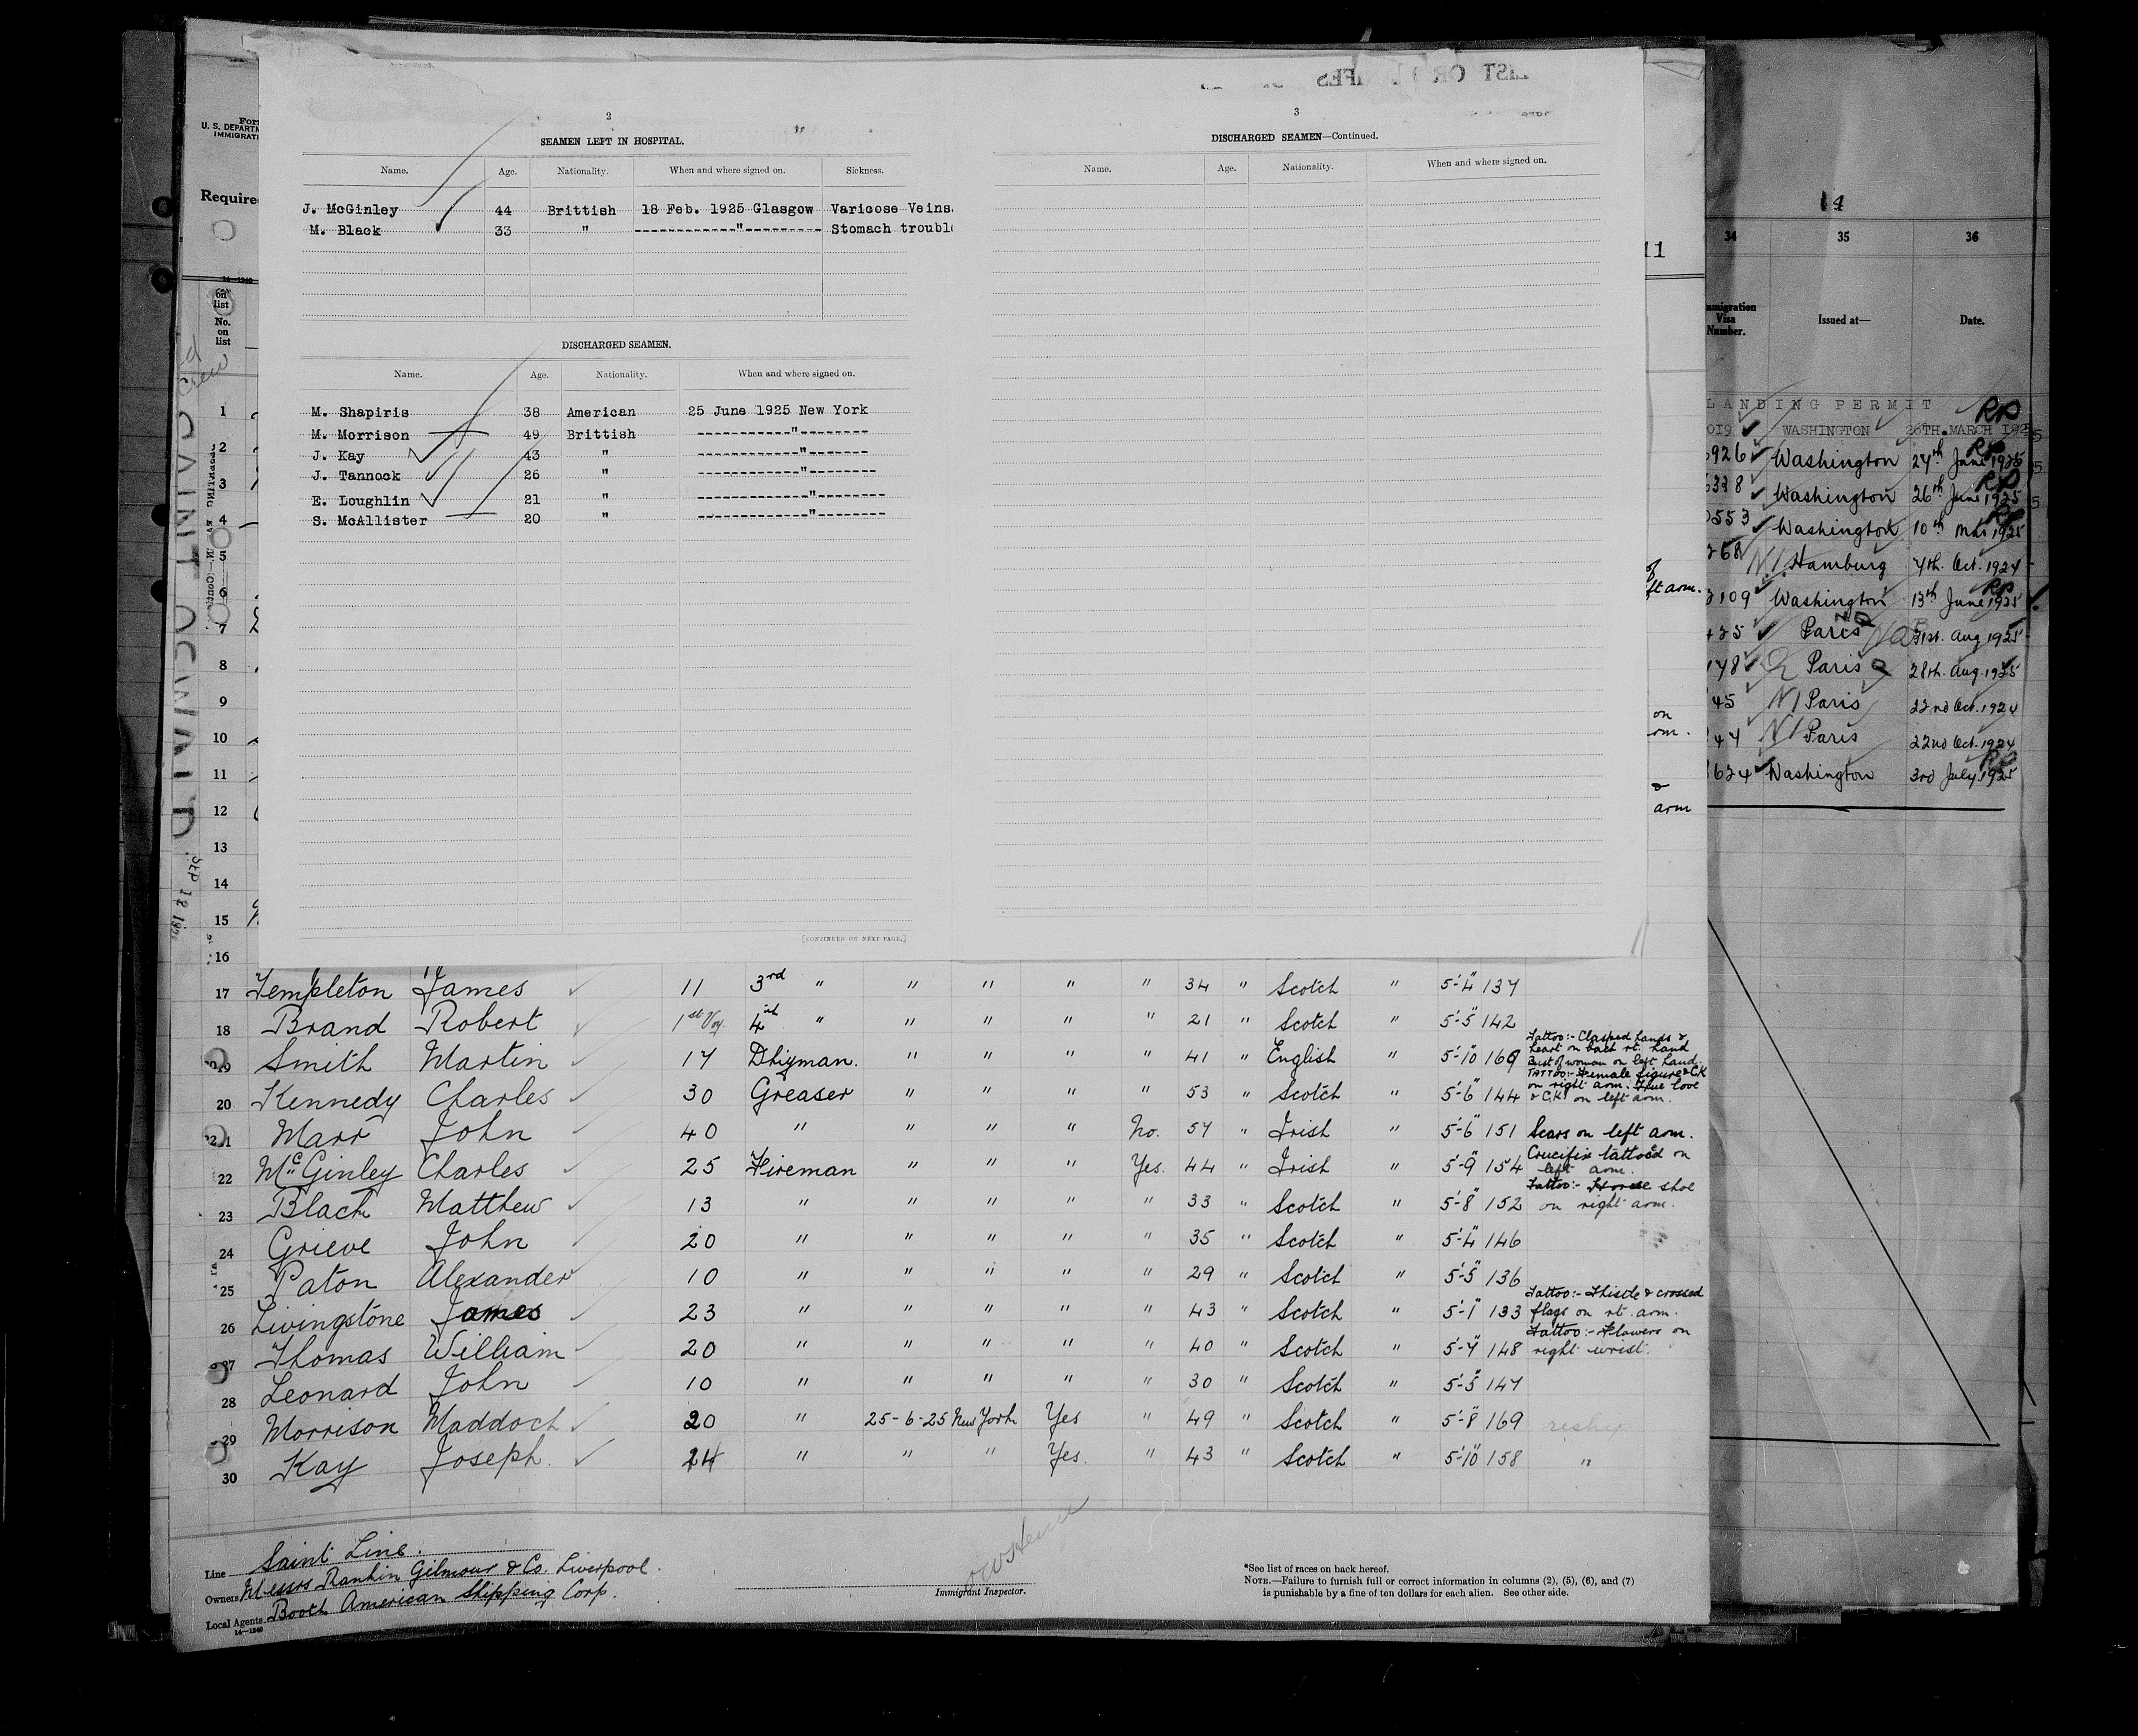 2
SEAMEN LEFT IN HOSPITAL.
Name. Age. Nationality. When and where signed on. Sickness.
J. McGinley 44 Brittish 18 Feb. 1925 Glasgow Varicose Veins
M. Black 33 " ------------"--------- Stomach trouble
DISCHARGED SEAMEN.
Name. Age. Nationality. When and where signed on.
M. Shapiris 38 American 25 June 1925 New York
M. Morrison 49 Brittish -----------"--------
J. Kay 43 " ------------"-------
J. Tannock 26 " ------------"--------
E. Loughlin 21 " -------------"--------
S. McAllister 20 " -------------"--------
[CONTINUED ON NEXT PAGE.]
3
DISCHARGED SEAMEN—Continued.
Name. Age. Nationality. When and where signed on.
U. S. DEPARTM
IMMIGRATI
Require
14—1240
on
list
No.
on
list
1
2
3
4
5
6
7
8
9
10
11
12
13
14
15
16
11
ft arm.
on
arm
34 35 36
Immigration Visa Number. Issued at— Date.
LANDING PERMIT
019 WASHINGTON 26TH. MARCH 1925 RP
926 Washington 24th June 1925 RP
328 Washington 26th June 1925 RP
553 Washington 10th Mar 1925
268 N.I. Hamburg 7th. Oct. 1924
109 Washington 13th June 1925 RP
425 Paris 31st. Aug 1925
178 Paris 28th. Aug. 1925
45 NI Paris 22nd Oct. 1924
44 NI Paris 22nd Oct. 1924
624 Washington 3rd July 1925
17 Templeton James 11 3rd " " " " " 34 " Scotch " 5'-4" 137
18 Brand Robert 1st Voy. 4th " " " " " 21 " Scotch " 5'-5" 142
19 Smith Martin 17 Dkyman. " " " " 41 " English " 5'-10" 160 Tattoo:- Clasped hands & heart on back rt. hand Bust of woman on left hand.
20 Kennedy Charles 30 Greaser " " " " 53 " Scotch " 5'-6" 144 TATTOO:- Female figure & CK on right arm. True love & C.K. on left arm.
21 Marr John 40 " " " " No. 57 " Irish " 5'-6" 151 Scars on left arm.
22 McGinley Charles 25 Fireman " " " Yes. 44 " Irish " 5'-9" 154 Crucifix tattoed on left arm.
23 Black Matthew 13 " " " " " 33 " Scotch " 5'-8" 152 Tattoo:- Horse shoe on right arm.
24 Grieve John 20 " " " " " 35 " Scotch " 5'-4" 146
25 Paton Alexander 10 " " " " " 29 " Scotch " 5'-5" 136
26 Livingstone James 23 " " " " " 43 " Scotch " 5'-1" 133 Tattoo:- Thistle & crossed flags on rt. arm.
27 Thomas William 20 " " " " " 40 " Scotch " 5'-7" 148 Tattoo:- Flowers on right wrist.
28 Leonard John 10 " " " " " 30 " Scotch " 5'-5" 147
29 Morrison Maddoch 20 " 25-6-25 New York Yes " 49 " Scotch " 5'-8" 169 reship
30 Kay Joseph. 24 " " " Yes. " 43 " Scotch " 5'-10" 158 "
Line Saint Line.
Owners Messrs Rankin Gilmour & Co. Liverpool.
Local Agents Booth American Shipping Corp.
14—1240
Immigrant Inspector.
*See list of races on back hereof.
NOTE.—Failure to furnish full or correct information in columns (2), (5), (6), and (7)
is punishable by a fine of ten dollars for each alien. See other side.